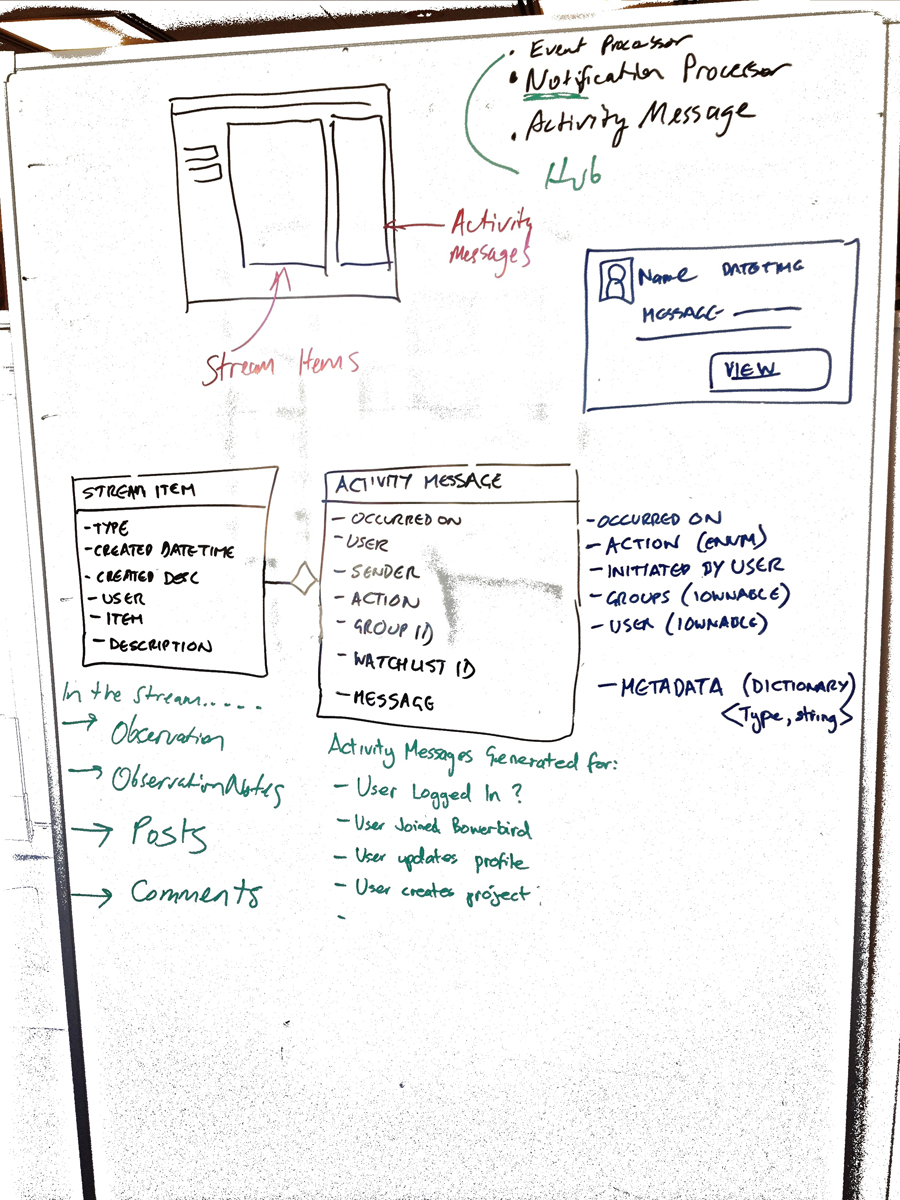 • Event Processor
• Notification Processor
• Activity Message
Hub
Activity
Messages
Stream Items
Name DATETIME
MESSAGE
VIEW
STREAM ITEM
- TYPE
- CREATED DATETIME
- CREATED DESC
- USER
- ITEM
- DESCRIPTION
ACTIVITY MESSAGE
- OCCURRED ON
- USER
- SENDER
- ACTION
- GROUP ID
- WATCHLIST ID
- MESSAGE
- OCCURRED ON
- ACTION (ENUM)
- INITIATED BY USER
- GROUPS (IOWNABLE)
- USER (IOWNABLE)
- METADATA (DICTIONARY)
<Type, string>
In the stream.....
→ Observation
→ ObservationNotes
→ Posts
→ Comments
Activity Messages Generated for:
- User Logged In ?
- User Joined Bowerbird
- User updates profile
- User creates project
-